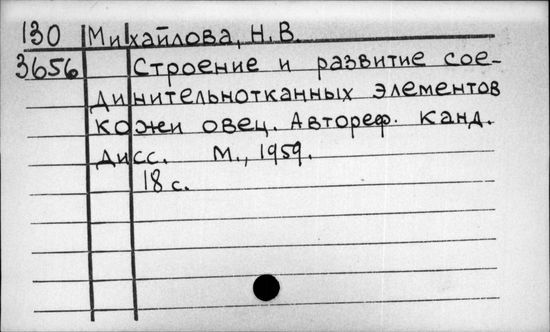 130 Михайлова, Н.В.
3656 Строение и развитие сое-
динительнотканных элементов
кожи овец. Автореф. канд.
дисс. М., 1959.
18 с.